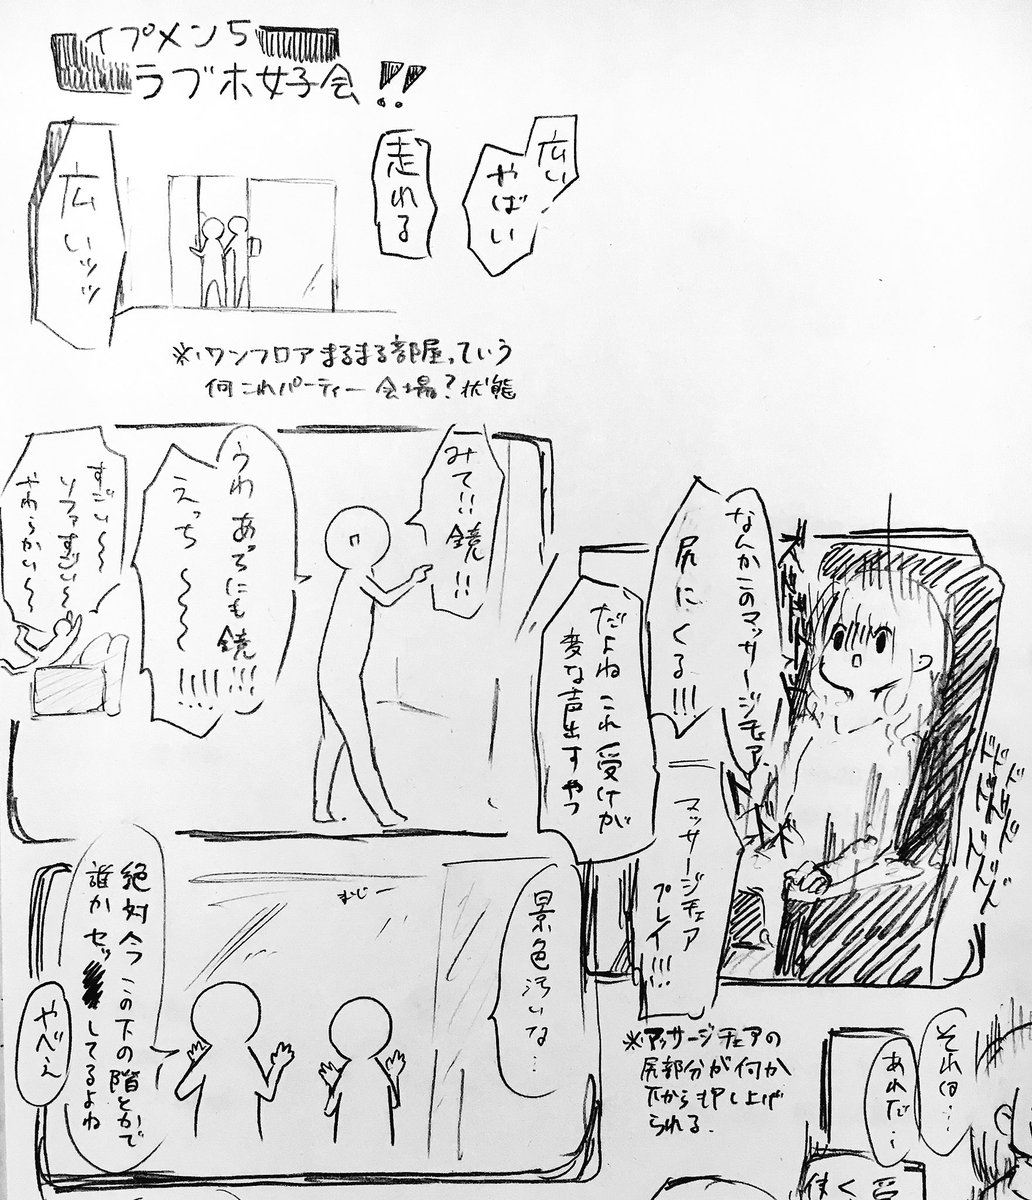 イプメン5
ラブホ女子会!!
広い
やばい
走れる
広いッッ
※ワンフロアまるまる部屋っていう
何これパーティー会場?状態
みて!!鏡!!
うわ あっちにも鏡!!!
えっち〜〜〜!!!!
すごい〜
ソファすごい〜
やわらかい〜
なんかこのマッサージチェア
尻にくる!!!
だよね これ 受けが
変な声出すやつ
マッサージチェア
プレイ!!!
ドドドドドド
※マッサージチェアの
尻部分が何か
下から押し上げ
られる.
景色汚いな…
むじー
絶対今この下の階とかで
誰かセッ
してるよね
やべえ
それは…
あれだ…